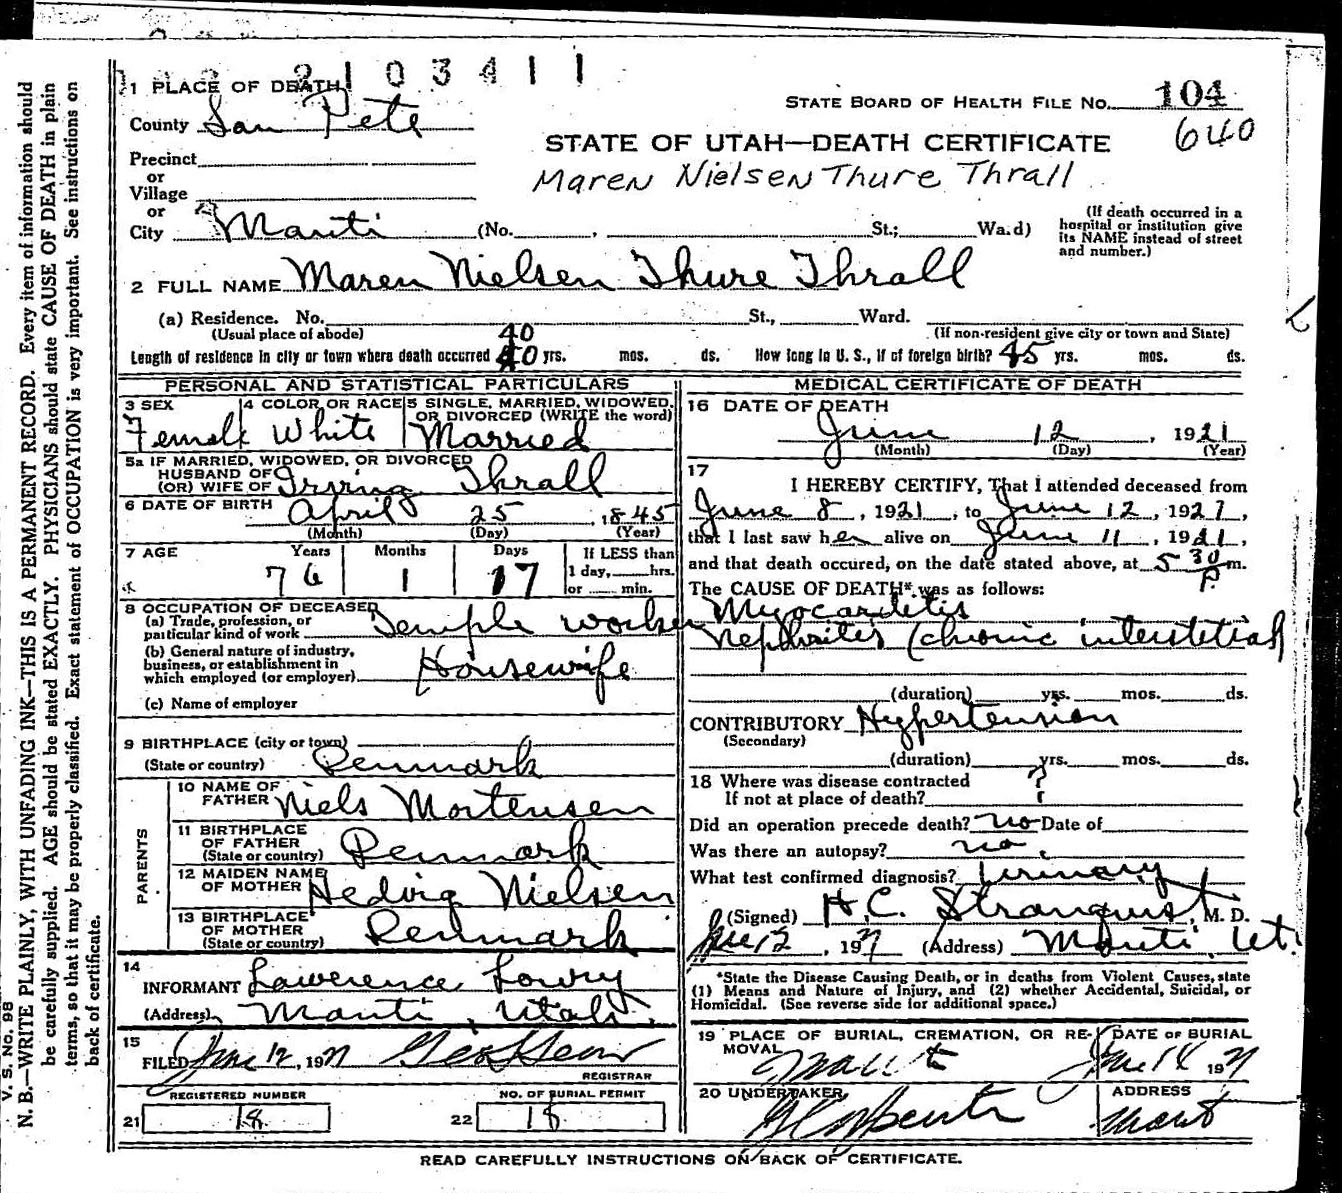 2103411
1 PLACE OF DEATH
STATE BOARD OF HEALTH FILE No. 104
640
County San Pete
STATE OF UTAH—DEATH CERTIFICATE
Maren Nielsen Thure Thrall
Precinct
or
Village
or
City Manti (No. , St.; Wa.d)
(If death occurred in a
hospital or institution give
its NAME instead of street
and number.)
2 FULL NAME Maren Nielsen Thure Thrall
(a) Residence. No. St., Ward.
(Usual place of abode) (If non-resident give city or town and State)
40
Length of residence in city or town where death occurred 40 yrs. mos. ds. How long in U. S., if of foreign birth? 45 yrs. mos. ds.
PERSONAL AND STATISTICAL PARTICULARS
3 SEX 4 COLOR OR RACE 5 SINGLE, MARRIED, WIDOWED,
OR DIVORCED (WRITE the word)
Female White Married
5a IF MARRIED, WIDOWED, OR DIVORCED
HUSBAND OF
(OR) WIFE OF Irving Thrall
6 DATE OF BIRTH April 25 , 1845
(Month) (Day) (Year)
7 AGE Years Months Days If LESS than
1 day, hrs.
or min.
76 1 17
8 OCCUPATION OF DECEASED
(a) Trade, profession, or
particular kind of work Temple worker
(b) General nature of industry,
business, or establishment in
which employed (or employer) Housewife
(c) Name of employer
9 BIRTHPLACE (city or town)
(State or country) Denmark
PARENTS
10 NAME OF
FATHER Niels Mortensen
11 BIRTHPLACE
OF FATHER
(State or country) Denmark
12 MAIDEN NAME
OF MOTHER Hedvig Nielsen
13 BIRTHPLACE
OF MOTHER
(State or country) Denmark
14
INFORMANT Lawerence Lowry
(Address) Manti, Utah.
15
FILED June 12, 1921
REGISTRAR
REGISTERED NUMBER NO. OF BURIAL PERMIT
21 18 22 18
MEDICAL CERTIFICATE OF DEATH
16 DATE OF DEATH
June 12 , 1921
(Month) (Day) (Year)
17
I HEREBY CERTIFY, That I attended deceased from
June 8 , 1921 , to June 12 , 1921 ,
that I last saw her alive on June 11 , 1921 ,
and that death occured, on the date stated above, at 5 30 P. m.
The CAUSE OF DEATH* was as follows:
Myocarditis
Nephritis (chronic interstitial)
(duration) yrs. mos. ds.
CONTRIBUTORY Hypertension
(Secondary)
(duration) yrs. mos. ds.
18 Where was disease contracted
If not at place of death? ?
Did an operation precede death? no Date of
Was there an autopsy? no.
What test confirmed diagnosis? Urinary
(Signed) H.C. Stranquist, M. D.
June 12 , 1921 (Address) Manti Ut.
*State the Disease Causing Death, or in deaths from Violent Causes, state
(1) Means and Nature of Injury, and (2) whether Accidental, Suicidal, or
Homicidal. (See reverse side for additional space.)
19 PLACE OF BURIAL, CREMATION, OR RE-
MOVAL Manti
DATE OF BURIAL
June 14 1921
20 UNDERTAKER
ADDRESS
Manti
READ CAREFULLY INSTRUCTIONS ON BACK OF CERTIFICATE.
V. S. No. 98
N. B.—WRITE PLAINLY, WITH UNFADING INK—THIS IS A PERMANENT RECORD. Every item of information should
be carefully supplied. AGE should be stated EXACTLY. PHYSICIANS should state CAUSE OF DEATH in plain
terms, so that it may be properly classified. Exact statement of OCCUPATION is very important. See instructions on
back of certificate.